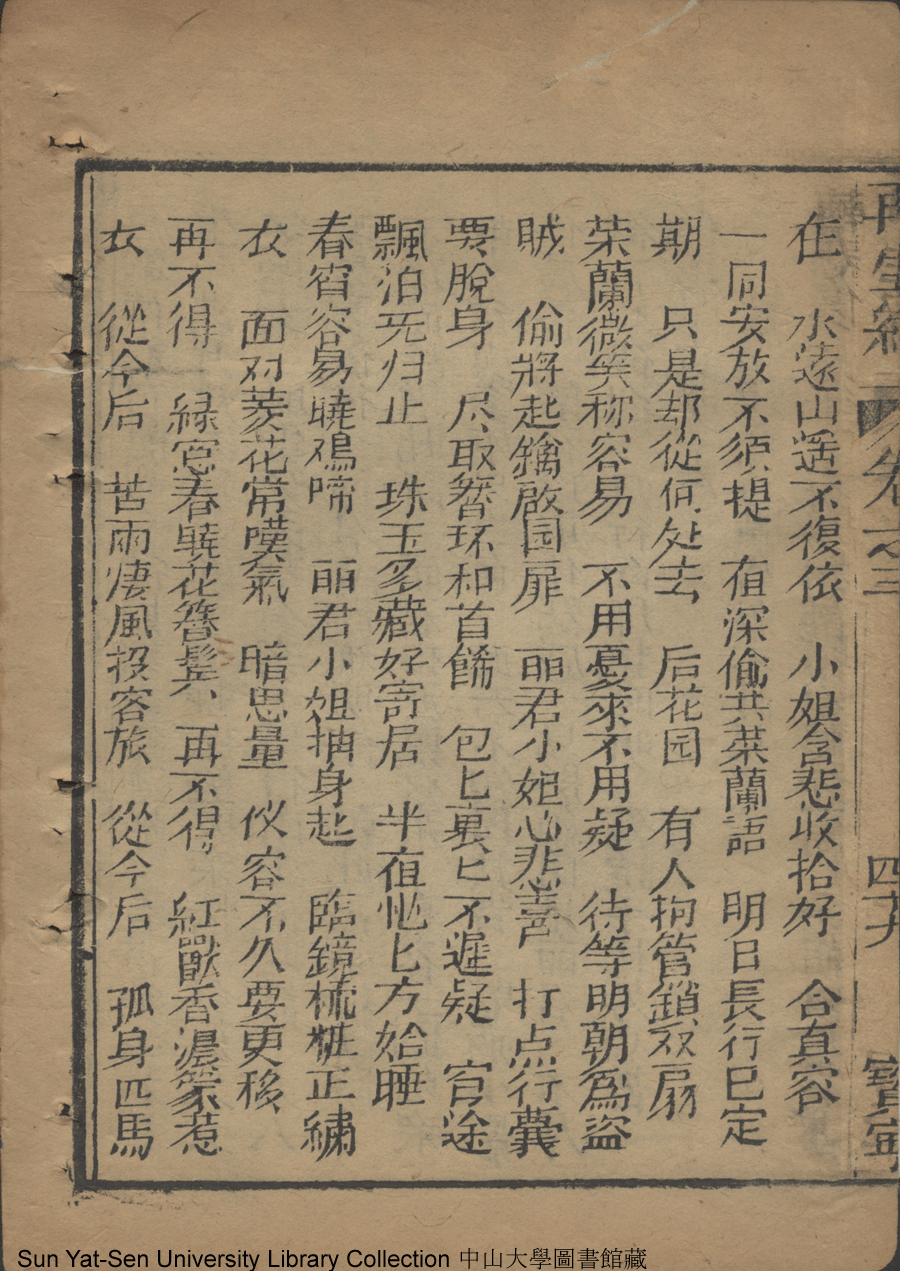 再生緣 卷之三 四十九 寶寧
在 水遠山遥不復依 小姐含悲收拾好 合真容
一同安放不须提 夜深偷共荣蘭語 明日長行已定
期 只是却從何处去 后花园 有人拘管鎖双扇
荣蘭微笑称容易 不用憂來不用疑 待等明朝為盗
贼 偷將起鑰啟园扉 丽君小姐心悲喜 打点行囊
要脫身 尽取簪环和首餙 包匕裹匕不遲疑 官途
飄泊无归止 珠玉多藏好寄居 半夜忙匕方始睡
春宵容易曉鸡啼 丽君小姐抽身起 臨鏡梳粧正綉
衣 面对菱花常嘆氣 暗思量 仪容不久要更移
再不得 緑窓春暁花簪鬓 再不得 紅獸香濃篆惹
衣 從今后 苦雨凄風投客旅 從今后 孤身匹馬
Sun Yat-Sen University Library Collection 中山大學圖書館藏